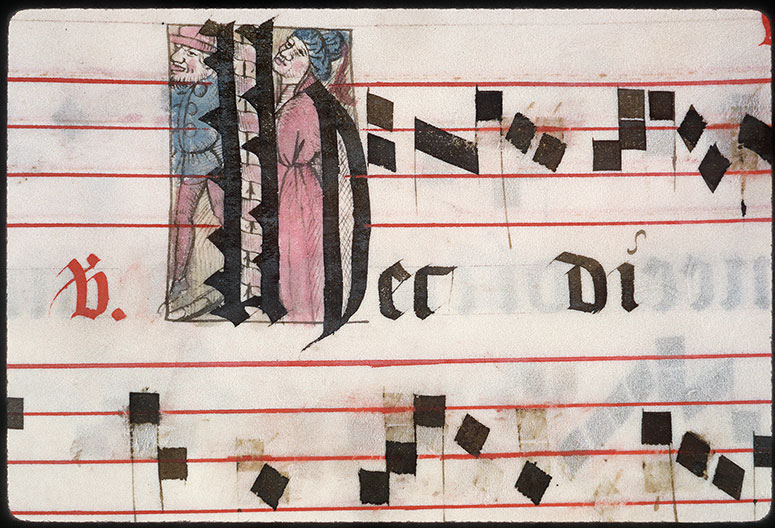 ℣. Hec di